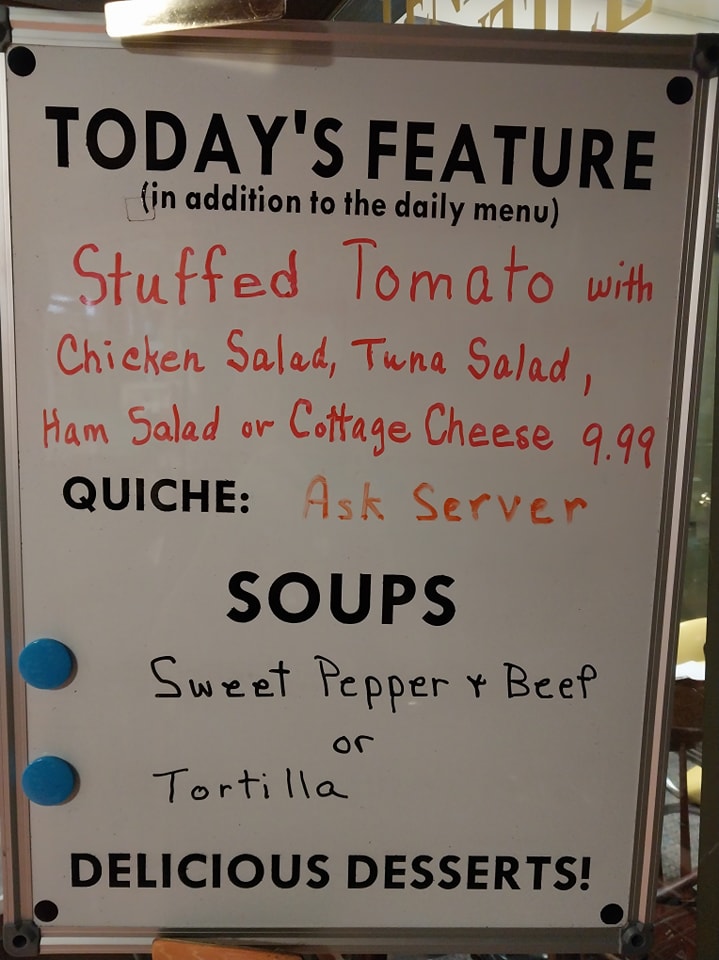 TODAY'S FEATURE
(in addition to the daily menu)
Stuffed Tomato with
Chicken Salad, Tuna Salad,
Ham Salad or Cottage Cheese 9.99
QUICHE: Ask Server
SOUPS
Sweet Pepper & Beef
or
Tortilla
DELICIOUS DESSERTS!